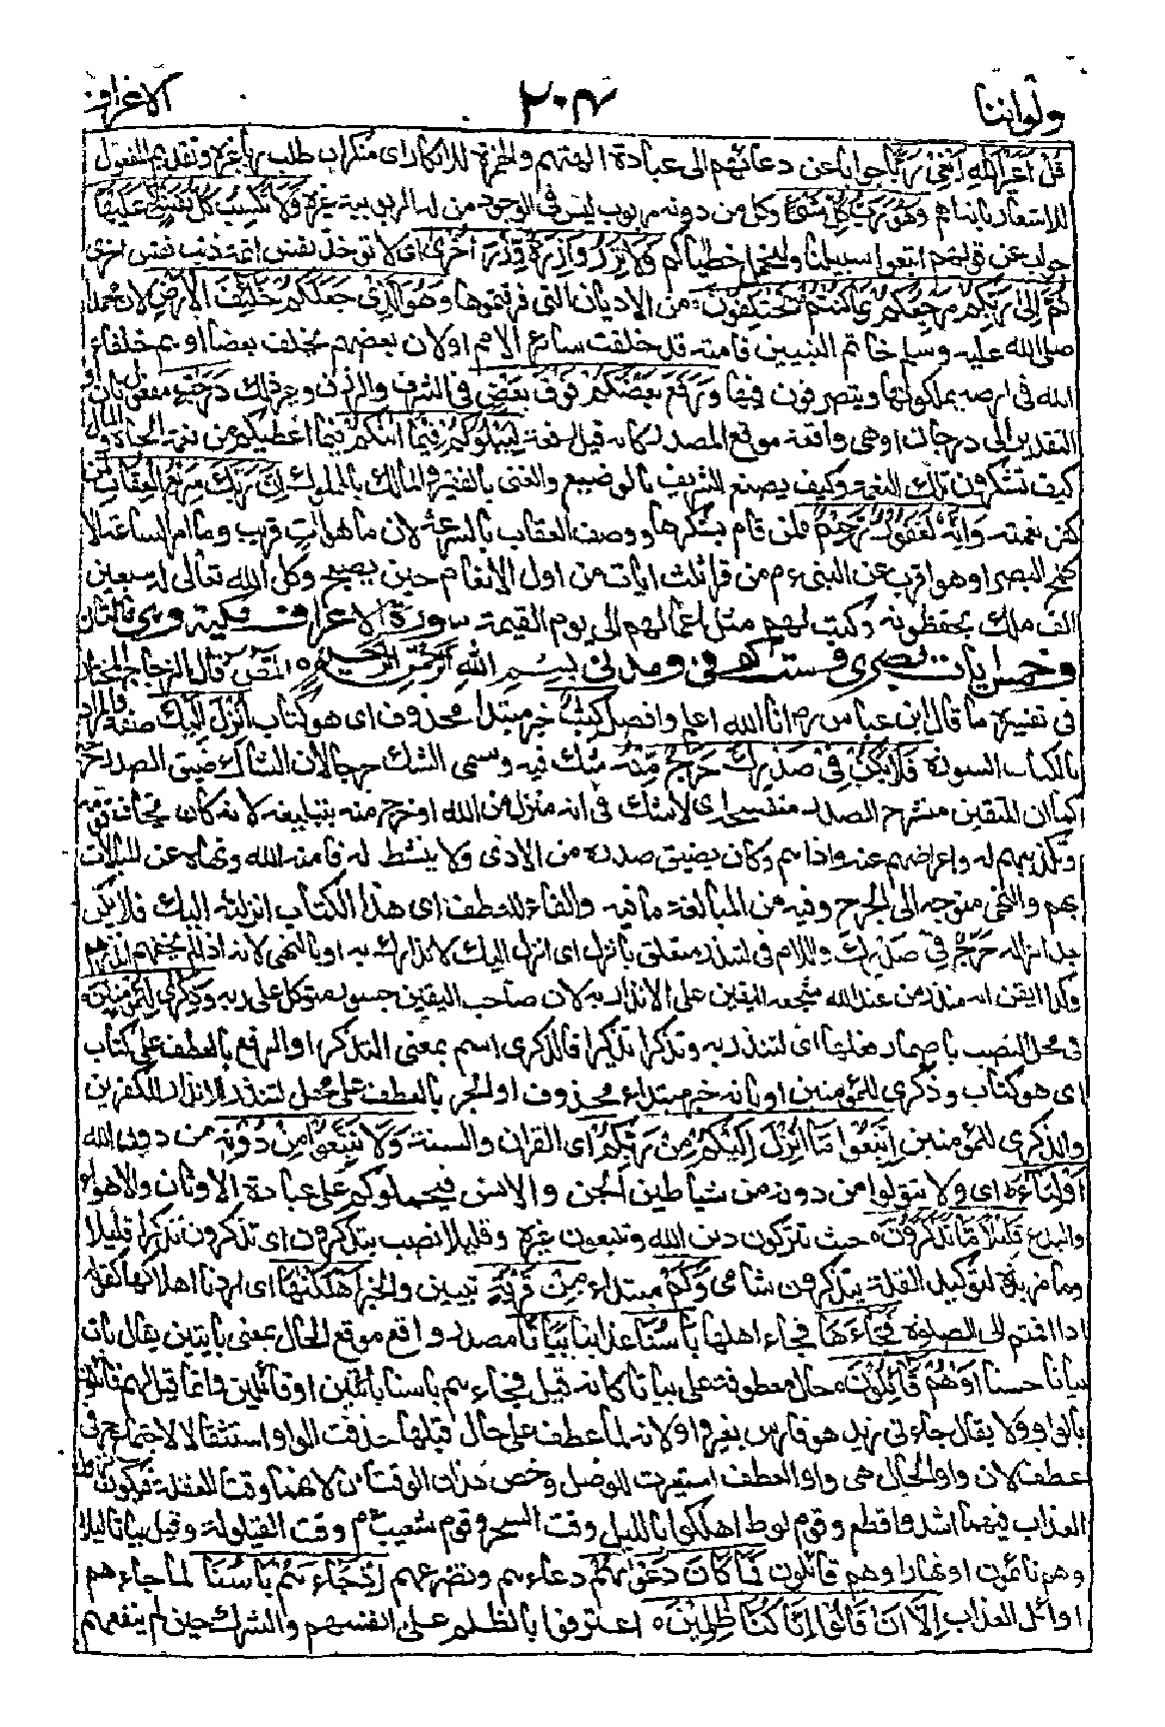 ولواننا ٢٠٤ الاعراف
قُلْ اَغَيْرَ اللهِ اَبْغِيْ رَبًّا جواب عن دعائهم الى عبادة الهتهم والهمزة للانكار اى منكر ان طلب ربا غيره وتقديم المفعول
للاشعار بانه اهم وَهُوَ رَبُّ كُلِّ شَيْءٍ وكل من دونه مربوب ليس فى الوجود من له الربوبية غيره وَلَا تَكْسِبُ كُلُّ نَفْسٍ اِلَّا عَلَيْهَا
جواب عن قولهم اتبعوا سبيلنا ولنحمل خطاياكم وَلَا تَزِرُ وَازِرَةٌ وِّزْرَ اُخْرٰى اى لا تؤخذ نفس اثمة بذنب نفس اخرى
ثُمَّ اِلٰى رَبِّكُمْ مَّرْجِعُكُمْ فَيُنَبِّئُكُمْ بِمَا كُنْتُمْ فِيْهِ تَخْتَلِفُوْنَ من الاديان التى فرقتموها وَهُوَ الَّذِيْ جَعَلَكُمْ خَلٰٓئِفَ الْاَرْضِ لان محمدا
صلى الله عليه وسلم خاتم النبيين فامته قد خلفت سائر الامم او لان بعضهم يخلف بعضا او هم خلفاء
الله فى ارضه يملكونها ويتصرفون فيها وَرَفَعَ بَعْضَكُمْ فَوْقَ بَعْضٍ فى الشرف والرزق وغير ذلك دَرَجٰتٍ مفعول ثان او
التقدير الى درجات او هى واقعة موقع المصدر كانه قيل رفعة لِّيَبْلُوَكُمْ فِيْ مَا اٰتٰىكُمْ فيما اعطيكم من نعمة الجاه والمال
كيف تشكرون تلك النعمة وكيف يصنع الشريف بالوضيع والغنى بالفقير والمالك بالمملوك اِنَّ رَبَّكَ سَرِيْعُ الْعِقَابِ لمن
كفر نعمته وَاِنَّهٗ لَغَفُوْرٌ رَّحِيْمٌ لمن قام بشكرها ووصف العقاب بالسرعة لان ما هو ات قريب وما امر الساعة الا
كلمح البصر او هو اقرب عن النبى ع م من قرا ثلث ايات من اول الانعام حين يصبح وكل الله تعالى له سبعين
الف ملك يحفظونه وكتب لهم مثل اعمالهم الى يوم القيمة سورة الاعراف مكية وهى مائتان
وخمس ايات بصرى وست كوفى ومدنى بِسْمِ اللهِ الرَّحْمٰنِ الرَّحِيْمِ الٓمٓصٓ قال الزجاج المختار
فى تفسيره ما قال ابن عباس رض انا الله اعلم وافصل كِتٰبٌ خبر مبتدا محذوف اى هو كتاب اُنْزِلَ اِلَيْكَ صفته والمراد
بالكتاب السورة فَلَا يَكُنْ فِيْ صَدْرِكَ حَرَجٌ مِّنْهُ شك فيه وسمى الشك حرجا لان الشاك ضيق الصدر حرجه
كما ان المتيقن منشرح الصدر منفسحه اى لا تشك فى انه منزل من الله او حرج منه بتبليغه لانه كان يخاف قومه
وتكذيبهم له واعراضهم عنه واذاهم وكان يضيق صدره من الاذى ولا ينشط له فامنه الله ونهاه عن المبالات
بهم والنهى متوجه الى الحرج وفيه من المبالغة ما فيه والفاء للعطف اى هذا الكتاب انزلته اليك فلا يكن
بعد انزاله حَرَجٌ فِيْ صَدْرِكَ واللام فى لتنذر متعلق بانزل اى انزل اليك لانذارك به او بالنهى لانه اذا لم يخفهم انذرهم
وكذا ايقن انه من عند الله شجعه اليقين على الانذار به لان صاحب اليقين جسور متوكل على ربه وَذِكْرٰى لِلْمُؤْمِنِيْنَ
فى محل النصب باضمار فعلها اى لتنذر به وتذكر تذكيرا فالذكرى اسم بمعنى التذكير او الرفع بالعطف على كتاب
اى هو كتاب وذكرى للمؤمنين او بانه خبر مبتداء محذوف او الجر بالعطف على محل لتنذر للانذار للكفرين
والذكرى للمؤمنين اِتَّبِعُوْا مَا اُنْزِلَ اِلَيْكُمْ مِّنْ رَّبِّكُمْ اى القران والسنة وَلَا تَتَّبِعُوْا مِنْ دُوْنِهٖ من دون الله
اَوْلِيَآءَ اى ولا تتولوا من دونه من شياطين الجن والانس فيحملوكم على عبادة الاوثان والاهواء
والبدع قَلِيْلًا مَّا تَذَكَّرُوْنَ حيث تتركون دين الله وتتبعون غيره وقليلا نصب بتذكرون اى تذكرون تذكرا قليلا
وما مزيدة لتوكيد القلة يتذكرون شامى وَكَمْ مبتداء مِّنْ قَرْيَةٍ تبيين والخبر اَهْلَكْنٰهَا اى اردنا اهلاكها كقوله
اذا قمتم الى الصلوة فَجَآءَهَا فجاء اهلها بَاْسُنَا عذابنا بَيَاتًا مصدر واقع موقع الحال بمعنى بايتين يقال بات
بياتا حسنا اَوْ هُمْ قَآئِلُوْنَ حال معطوفة على بياتا كانه قيل فجاءهم باسنا بائتين او قائلين وانما قيل هم قائلون
بلا واو ولا يقال جاءنى زيد هو فارس بغير واو لانه لما عطف على حال قبلها حذفت الواو استثقالا لاجتماع حرفى
عطف لان واو الحال هى واو العطف استعيرت للوصل وخص هذان الوقتان لانهما وقتا الغفلة فيكون نزول
العذاب فيهما اشد وافظع وقوم لوط اهلكوا بالليل وقت السحر وقوم شعيب ع م وقت القيلولة وقيل بياتا ليلا
وهم نائمون او نهارا وهم قائلون فَمَا كَانَ دَعْوٰىهُمْ دعاءهم وتضرعهم اِذْ جَآءَهُمْ بَاْسُنَا لما جاءهم
اوائل العذاب اِلَّا اَنْ قَالُوْا اِنَّا كُنَّا ظٰلِمِيْنَ اعترفوا بالظلم على انفسهم والشرك حين لم ينفعهم